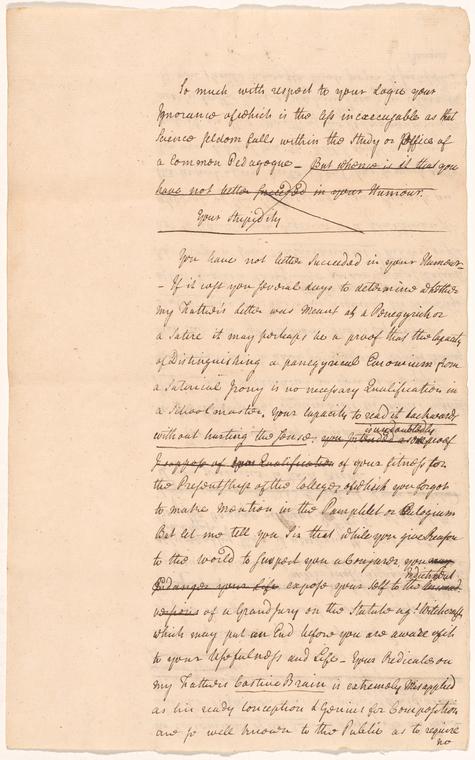 So much with respect to your Logic your
Ignorance of which is the less inexcusable as that
Science seldom falls within the Study or Office of
a Common Pedagogue – But whence is it that you
have not better succeeded in your Humour.
Your Stupidity
You have not better Succeeded in your Humour –
– If it cost you several days to determine whether
my Father's Letter was meant as a Panegyrick or
a Satire it may perhaps be a proof that the Capacity
of Distinguishing a panegyrical Encomium from
a Satirical Irony is no necessary Qualification in
a School master, your capacity to read it backwards
is undoubtedly
without hurting the Sense, you intended as a proof
I suppose of your Qualification of your fitness for
the Presentship of the College, of which you forgot
to make mention in the Pamphlet or Eulogium
But let me tell you Sir that while you give Reason
to the world to Suspect you a Conjurer, you may
Indictment
Endanger your Life expose your self to the
of a Grand Jury on the Statute agt. Witchcraft
which may put an End before you are aware of it
to your Usefulness and Life – Your Redicule on
my Fathers Costive Brain is extremely Misapplied
as his ready conception & Genius for Composition
are so well known to the Public as to require
no